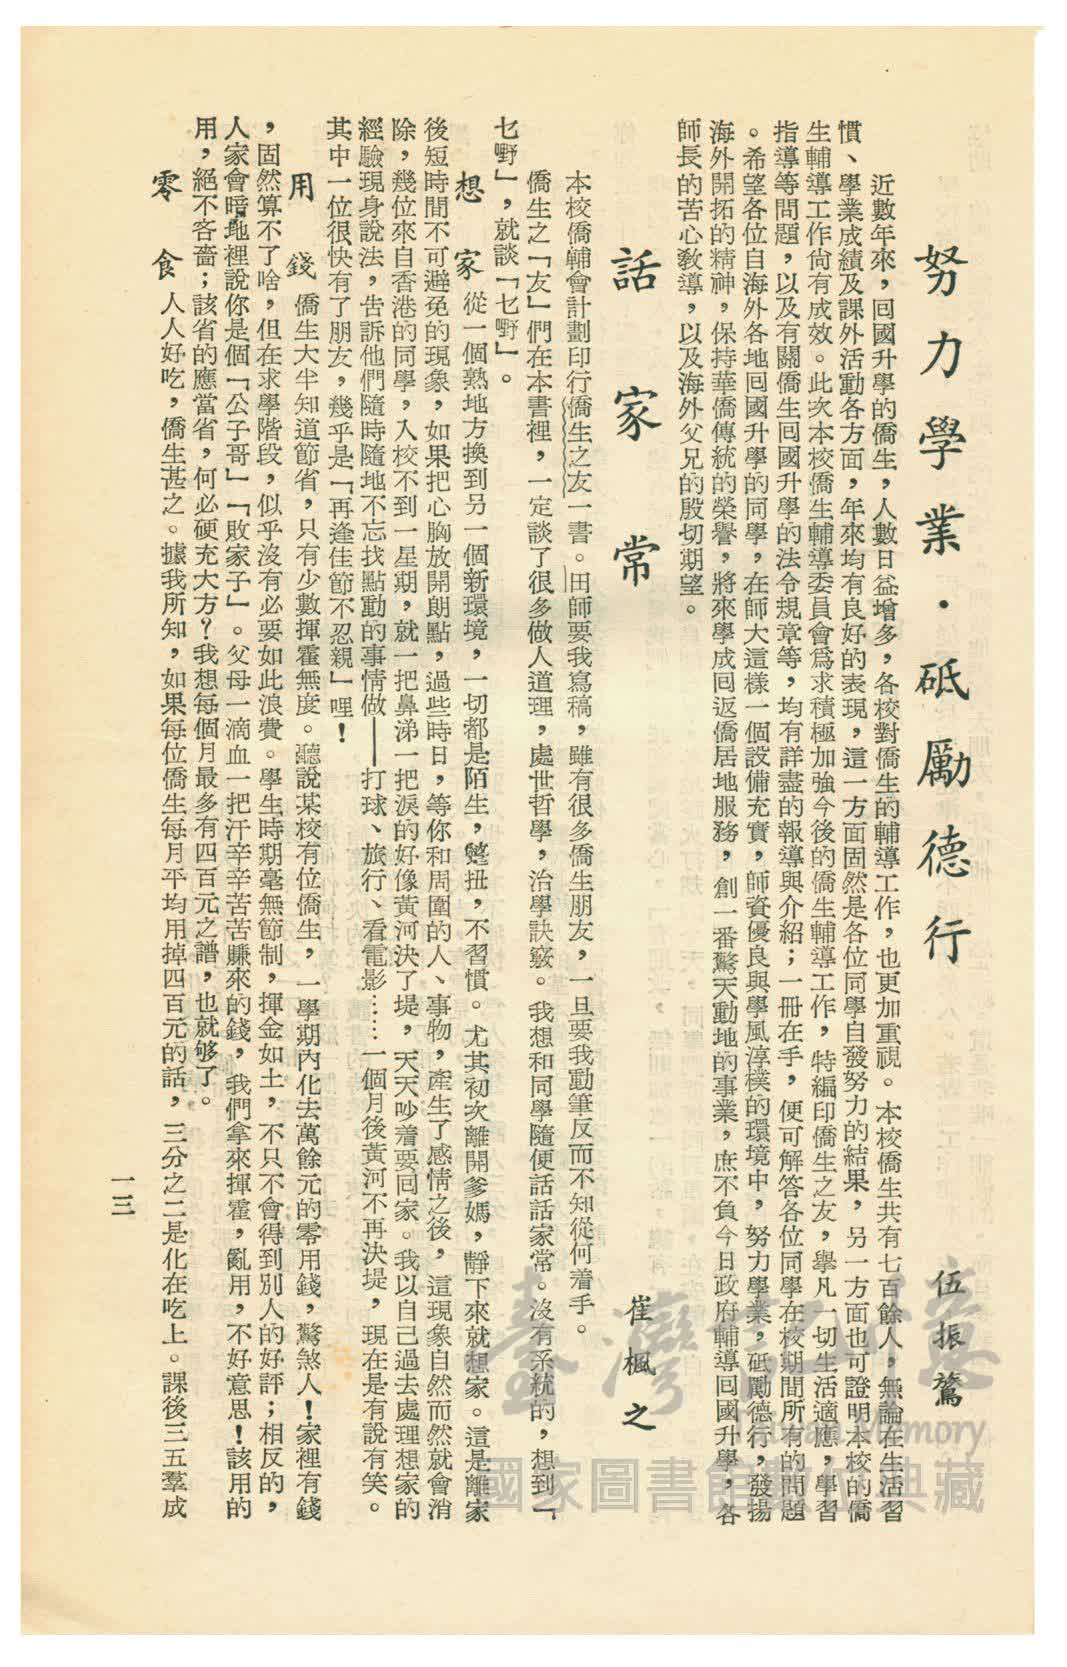 努力學業・砥勵德行
伍振鶩
近數年來，囘國升學的僑生，人數日益增多，各校對僑生的輔導工作，也更加重視。本校僑生共有七百餘人，無論在生活習
慣、學業成績及課外活動各方面，年來均有良好的表現，這一方面固然是各位同學自發努力的結果，另一方面也可證明本校的僑
生輔導工作尙有成效。此次本校僑生輔導委員會爲求積極加強今後的僑生輔導工作，特編印僑生之友，學凡一切生活適應，學習
指導等問題，以及有關僑生囘國升學的法令規章等，均有詳盡的報導與介紹；一冊在手，便可解答各位同學在校期間所有的問題
。希望各位自海外各地囘國升學的同學，在師大這樣一個設備充實，師資優良與學風淳樸的環境中，努力學業，砥勵德行，發揚
海外開拓的精神，保持華僑傳統的榮譽，將來學成囘返僑居地服務，創一番驚天動地的事業，庶不負今日政府輔導囘國升學，各
師長的苦心敎導，以及海外父兄的殷切期望。
話家常
崔楓之
本校僑輔會計劃印行僑生之友一書。田師要我寫稿，雖有很多僑生朋友，一旦要我動筆反而不知從何着手。
僑生之「友」們在本書裡，一定談了很多做人道理，處世哲學，治學訣竅。我想和同學隨便話話家常。沒有系統的，想到「
乜嘢」，就談「乜嘢」。
想家 從一個熟地方換到另一個新環境，一切都是陌生，彆扭，不習慣。尤其初次離開爹媽，靜下來就想家。這是離家
後短時間不可避免的現象，如果把心胸放開朗點，過些時日，等你和周圍的人、事物，產生了感情之後，這現象自然而然就會消
除，幾位來自香港的同學，入校不到一星期，就一把鼻涕一把淚的好像黃河決了堤，天天吵着要囘家。我以自己過去處理想家的
經驗現身說法，告訴他們隨時隨地不忘找點動的事情做——打球、旅行、看電影……一個月後黃河不再決堤，現在是有說有笑。
其中一位很快有了朋友，幾乎是「再逢佳節不忍親」哩！
用錢 僑生大半知道節省，只有少數揮霍無度。聽說某校有位僑生，一學期內化去萬餘元的零用錢，驚煞人！家裡有錢
，固然算不了啥，但在求學階段，似乎沒有必要如此浪費。學生時期毫無節制，揮金如土，不只不會得到別人的好評；相反的，
人家會暗地裡說你是個「公子哥」「敗家子」。父母一滴血一把汗辛辛苦苦賺來的錢，我們拿來揮霍，亂用，不好意思！該用的
用，絕不吝嗇；該省的應當省，何必硬充大方？我想每個月最多有四百元之譜，也就够了。
零食 人人好吃，僑生甚之。據我所知，如果每位僑生每月平均用掉四百元的話，三分之二是化在吃上。課後三五羣成
一三
臺灣記憶
Taiwan Memory
國家圖書館數位典藏